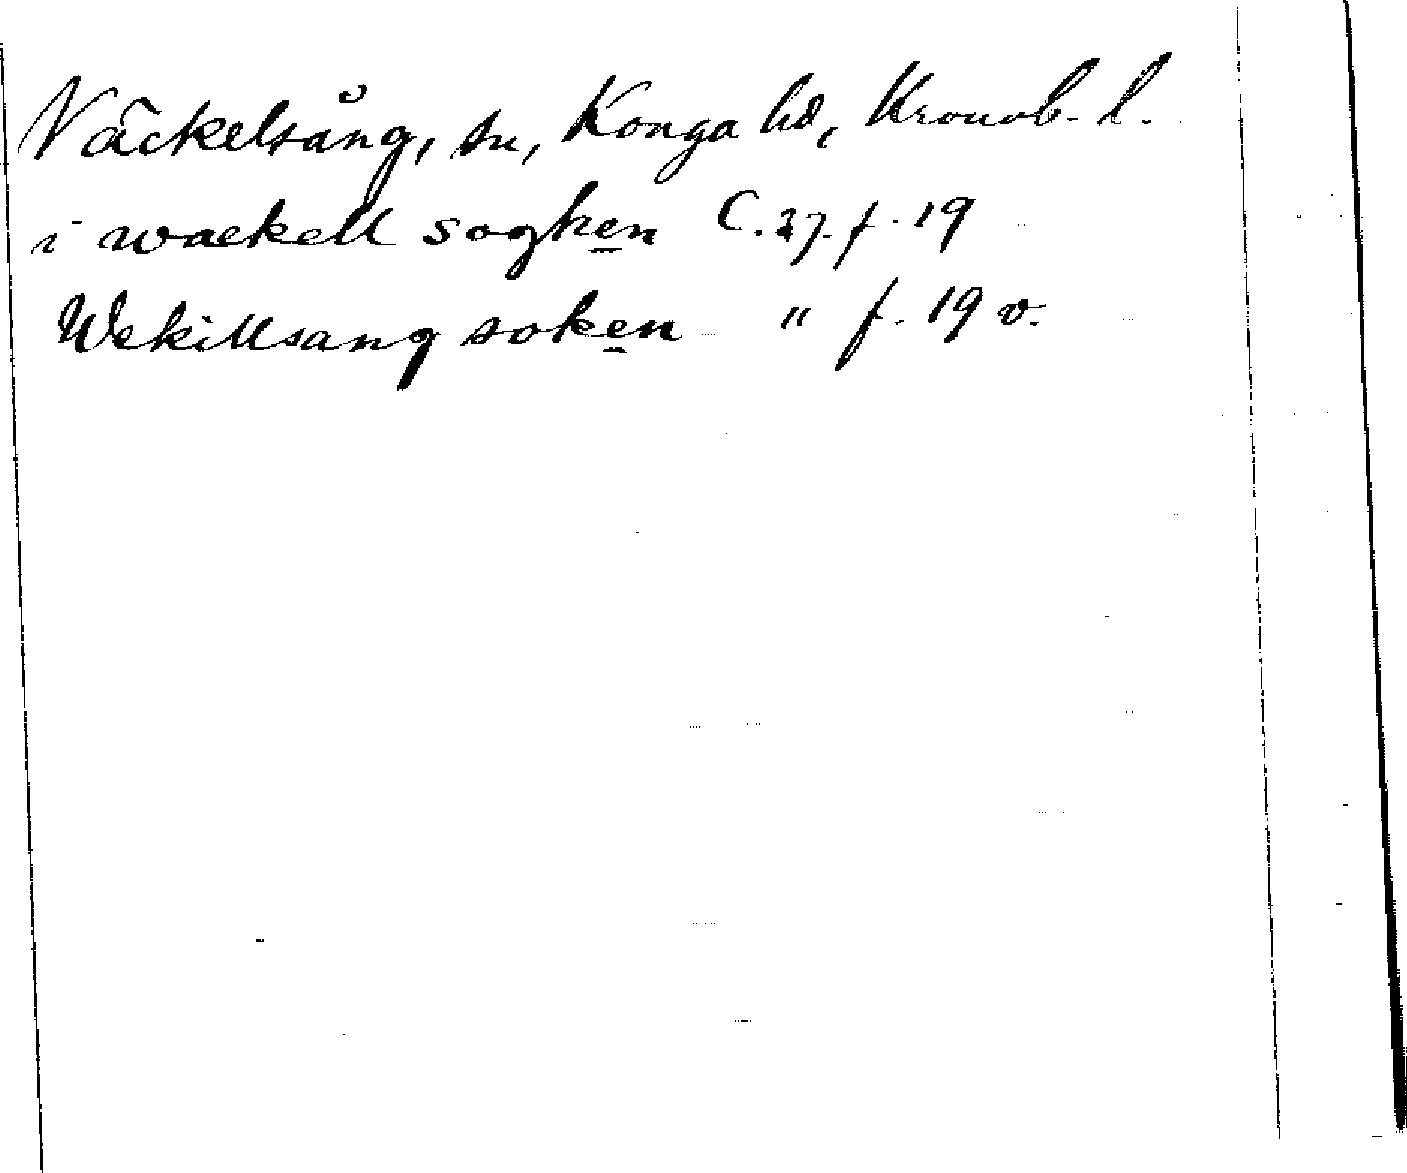 Väckelsång, sn, Konga hd, Kronob. l.
i waekell soghen C. 27. f. 19
Wekillsang soken " f. 19 v.